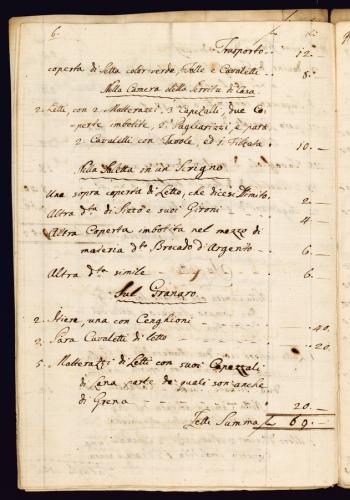 6.
Trasporto 12. —
coperta di Letto color verde, Tolle e Cavaletti 8.
Nella Camera della Servitù di Casa
2. Letti, con 2 Matterazzi, 3 Capezalli, due Co-
perte imbotite, 2 Pagliarizzi, e para
2. Cavaletti con Tavole, ed 1 10. —
Nella Saletta in un Scrigno
Una sopra coperta di Letto, che dicesi 2. —
Altra d.ta di Seta e suoi Gironi 4. —
Altra Coperta imbotita nel mezzo di
materia d.ta Brocado d'Argento 6. —
Altra d.ta simile 6. —
Sul Granaro
2. una con Cenghioni 40.
2. Para Cavaletti di Letto 20.
5. Matterazzi di Letti con suoi Capezzali
di Lana parte de quali son anche
di Grena 20. —
Letti Summa £ 69. —